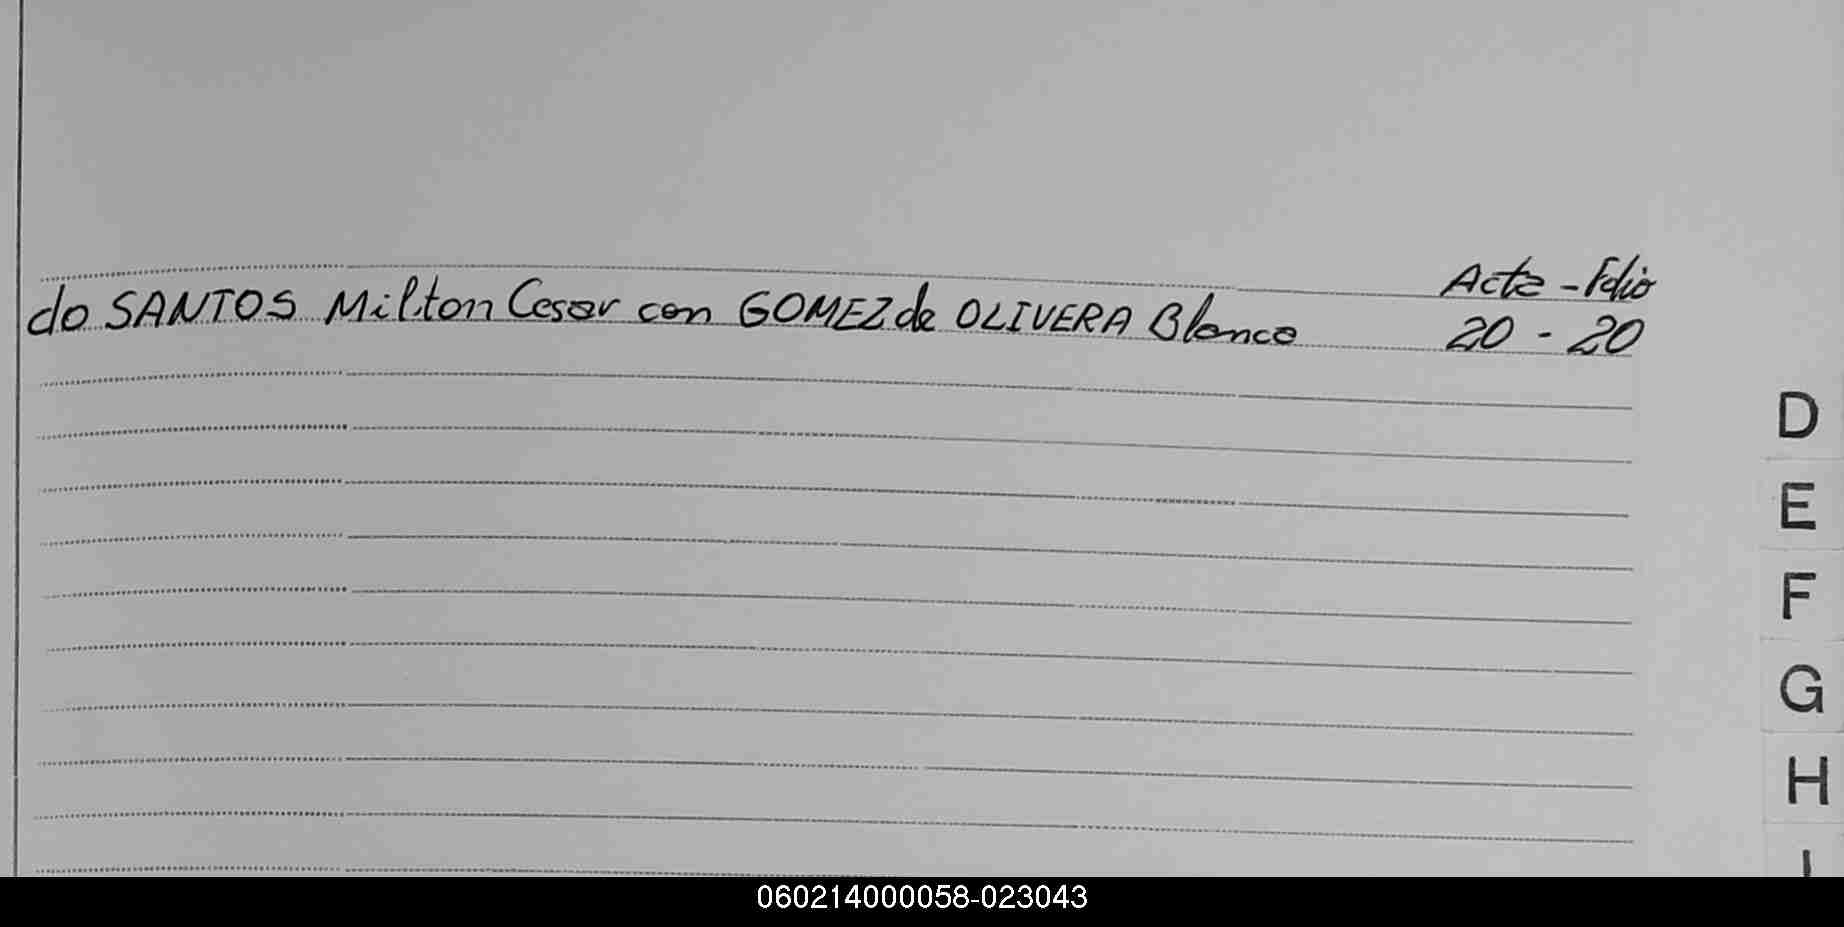 Acta - Folio
do SANTOS Milton Cesar con GOMEZ de OLIVERA Blanca 20 - 20
D
E
F
G
H
I
060214000058-023043